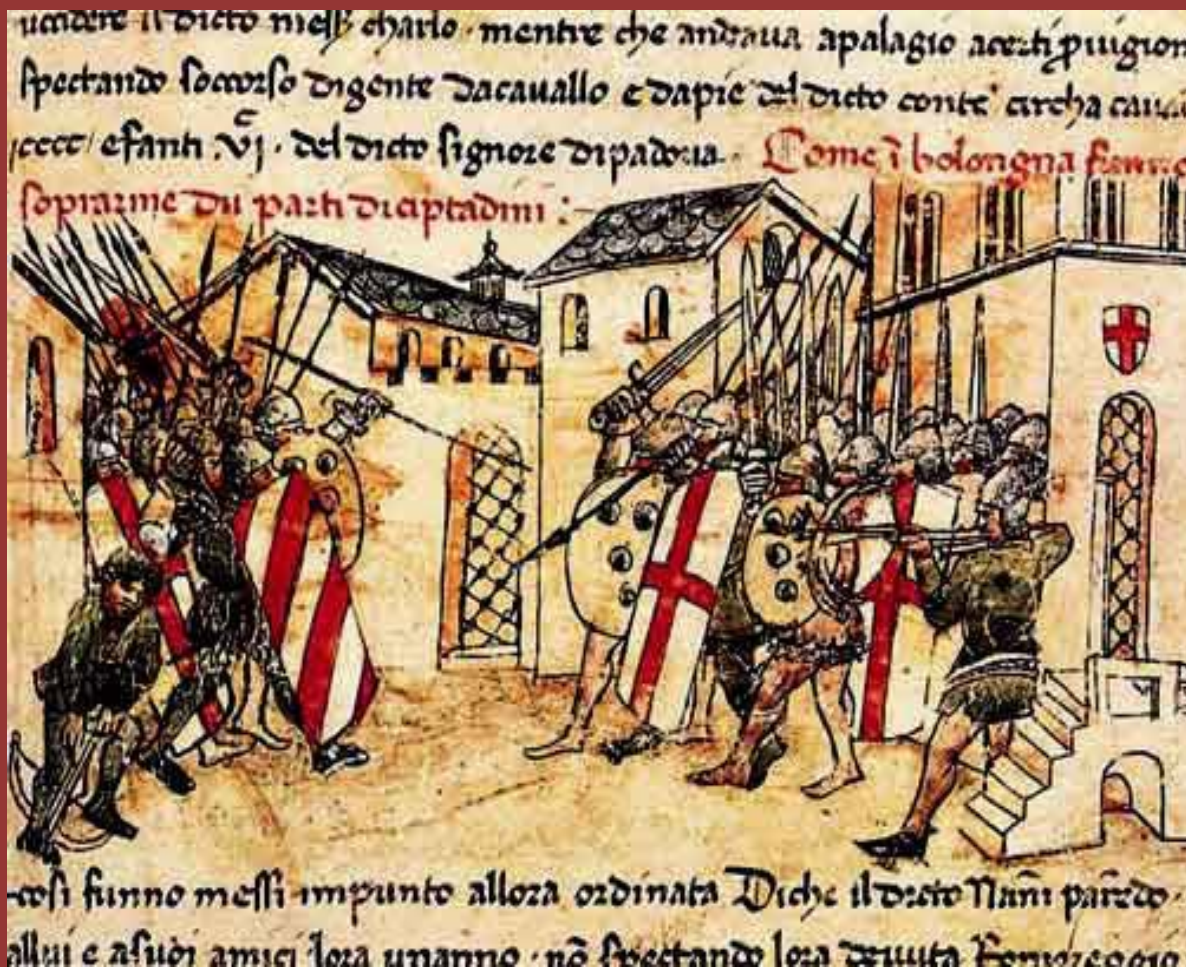 uccidere il dicto mess charlo · mentre che andaua apalagio acerti
spectando soccorso digente dacauallo e dapie del dicto conte circha
cccc / efanti .vjc. del dicto signore dipadoua · Come ī bolongna
soprarme du parti diciptadini :~
cosi funno messi impunto allora ordinata Diche il dicto Nāni
allui e asuoi amici lora unanno · nō spectando lora